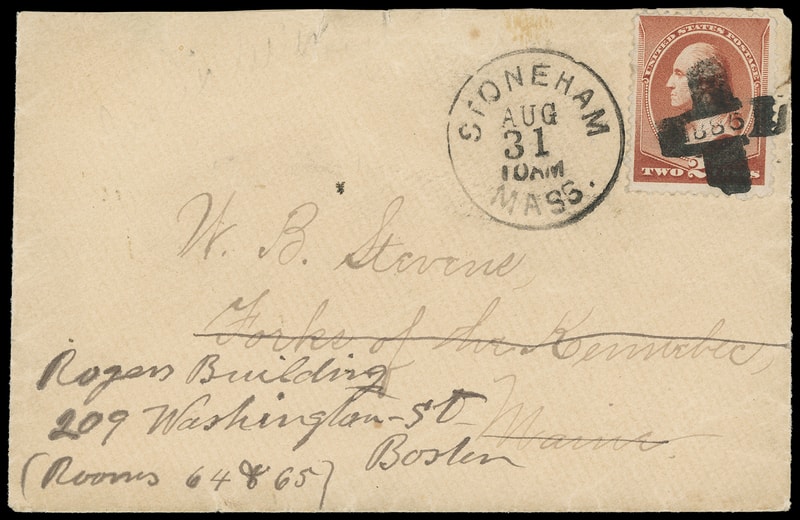 STONEHAM
AUG
31
10AM
MASS.
UNITED STATES POSTAGE
1885
TWO 2
W. B. Stevens,
Forks of the Kennebec,
Maine
Rogers Building
209 Washington St
Boston
(Rooms 64 & 65)